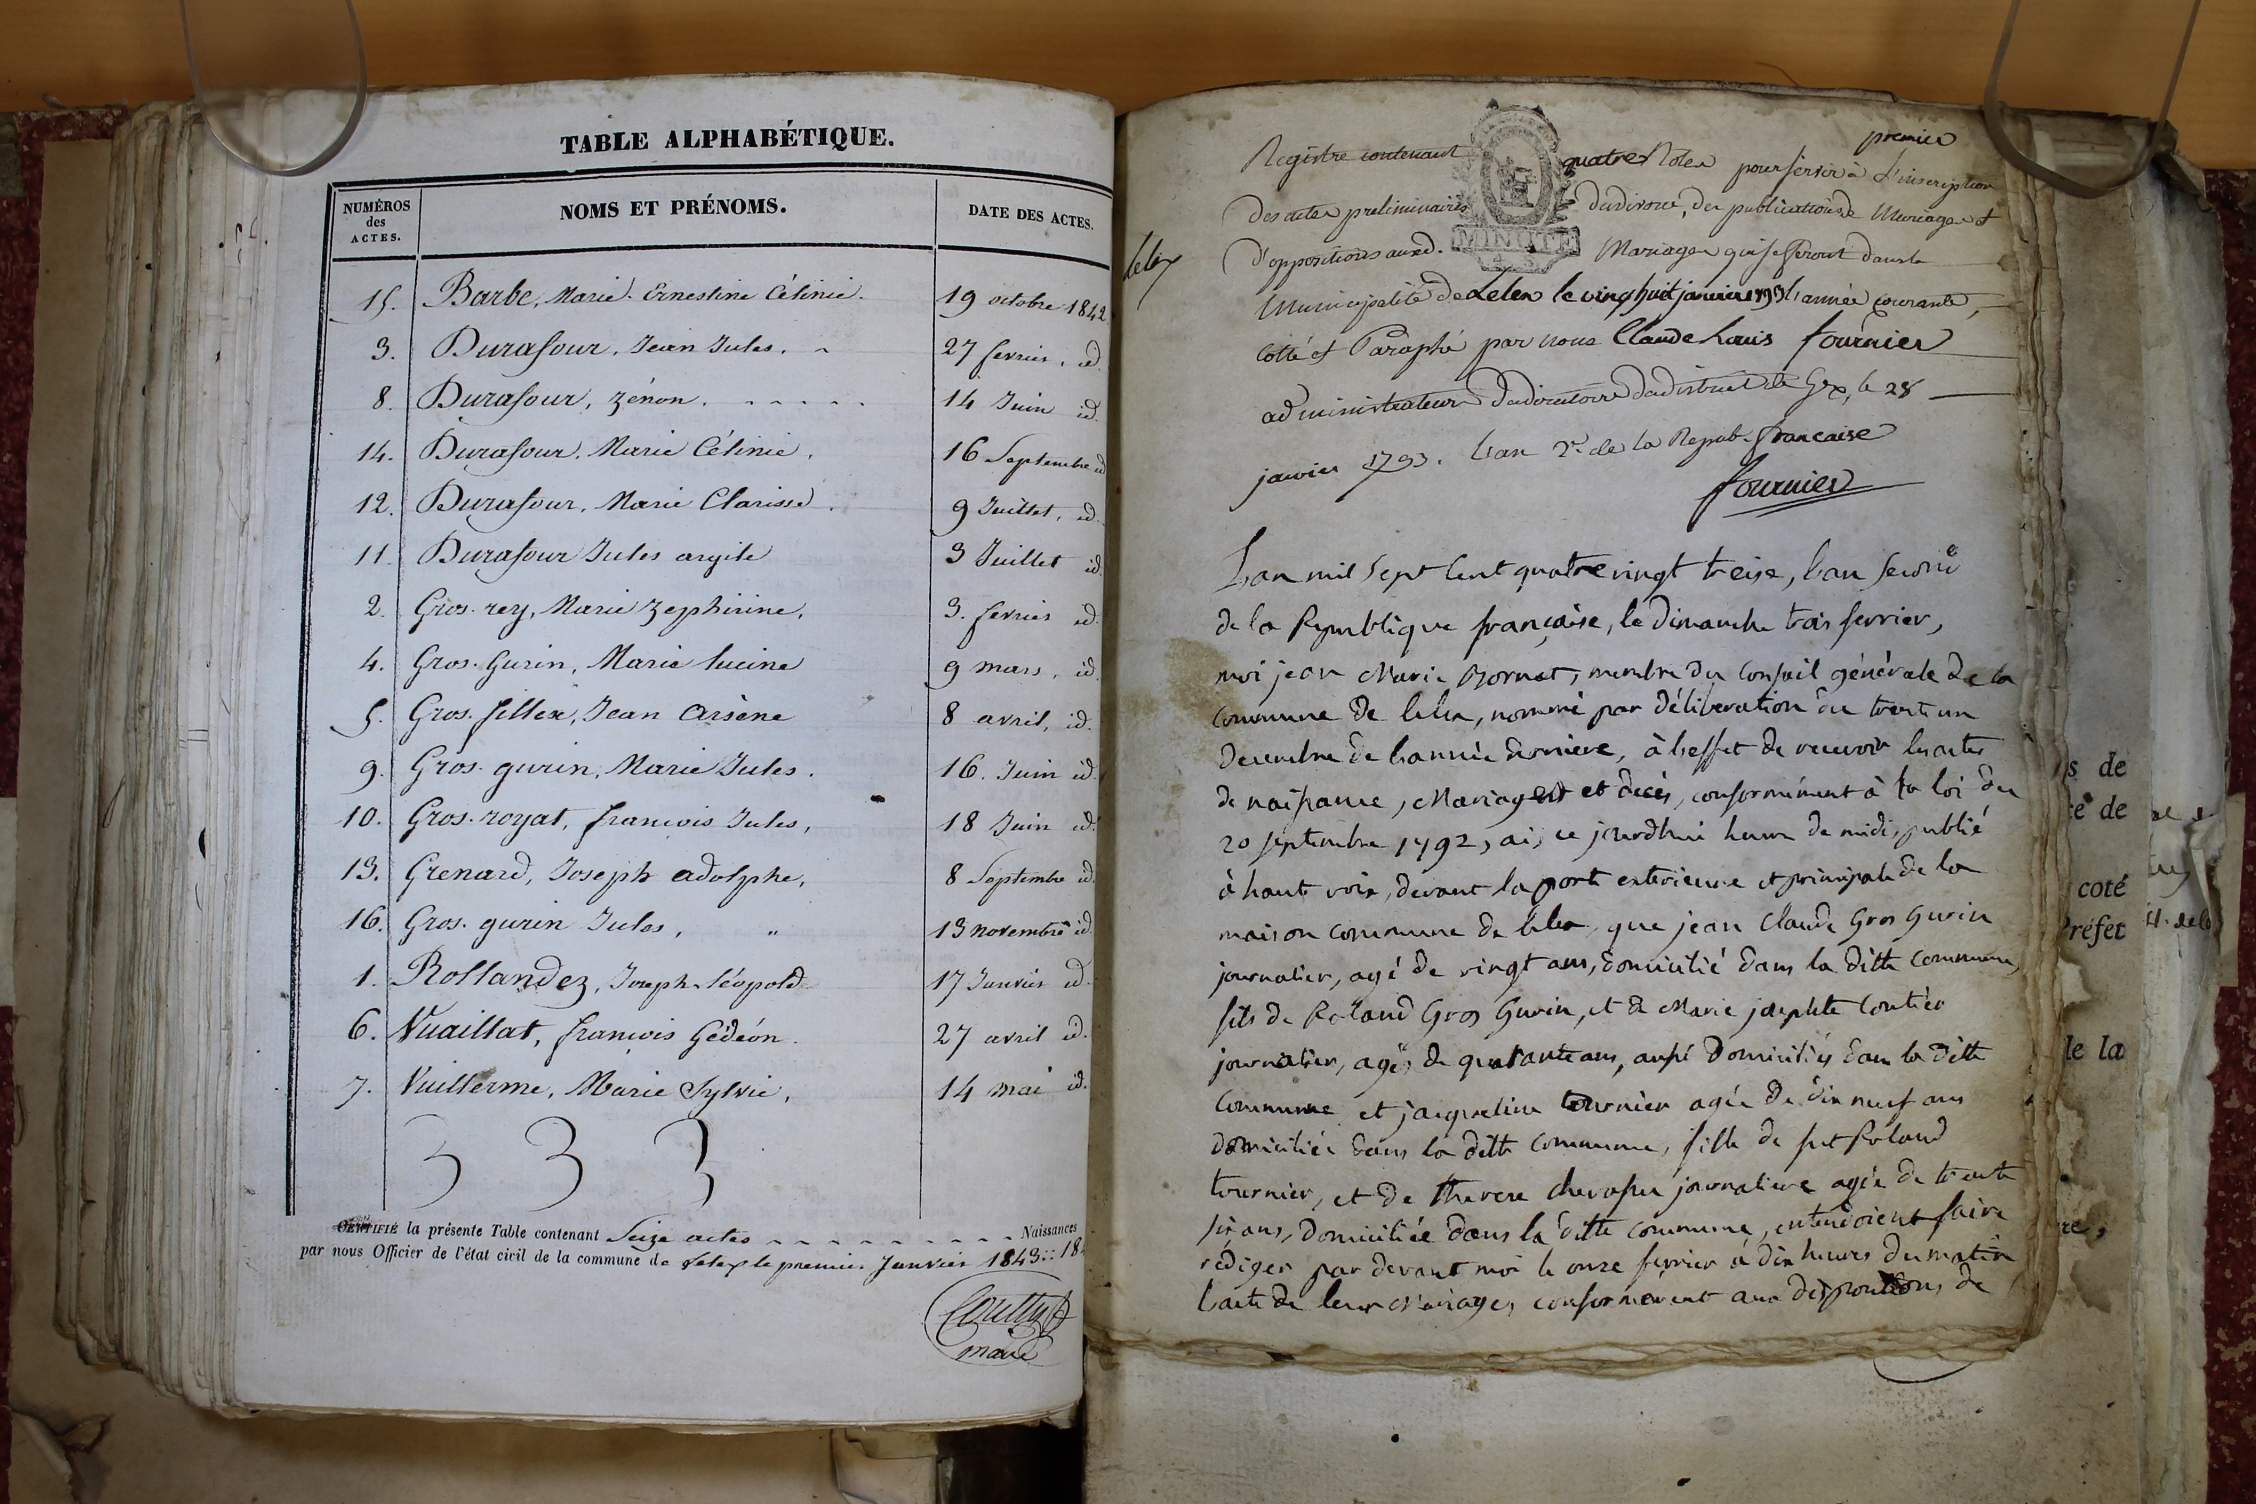 TABLE ALPHABÉTIQUE.
NUMÉROS des ACTES. NOMS ET PRÉNOMS. DATE DES ACTES.
15. Barbe, Marie Ernestine Célinie. 19 octobre 1842
3. Durafour, Jean Jules. 27 fevrier, id.
8. Durafour, zénon. 14 Juin id.
14. Durafour, Marie Célinie, 16 Septembre id
12. Durafour, Marie Clarisse. 9 Juillet, id.
11. Durafour Jules argile 3 Juillet id.
2. Gros-rey, Marie Zephirine, 3. fevrier id.
4. Gros-Gurin, Marie lucine 9 mars, id.
5. Gros-fillex, Jean Arsène 8 avril, id.
9. Gros-gurin, Marie Jules. 16. Juin id.
10. Gros-royat, françois Jules, 18 Juin id.
13. Grenard, Joseph adolphe, 8 Septembre id.
16. Gros-gurin Jules, " 13 novembre id.
1. Rollandez, Joseph-léopold 17 Janvier id.
6. Vuaillat, françois Gédéon. 27 avril id.
7. Vuillerme, Marie Sylvie, 14 mai id.
CERTIFIÉ la présente Table contenant Seize actes Naissances
par nous Officier de l'état civil de la commune de Lelex le premier Janvier 1843 :: 18
maire
premier
Registre contenant quatre Roles pour servir à L'inscription
Des actes preliminaires du divorce, des publications de Mariages et
D'oppositions aux d. Mariages qui se feront dans la
MINUTE
Lelex
Municipalité de Lelex le vingt huit janvier 1793 l'année courante,
Cotté et Paraphé par nous Claude Louis fournier
administrateur du directoire du district de Gex, le 28
janvier 1793. L'an 2e. de la Repub. française
fournier
L'an mil sept cent quatre vingt treise, l'an second
de la Republique française, le dimanche trois fevrier,
moi jean Marie Bornet, membre du Conseil générale de la
commune de lelex, nommé par déliberation du trent un
decembre de l'année derniere, à l'effet de recevoir les actes
de naissance, Mariages et decès, conformément à la loi du
20 septembre 1792, ai, ce jourdhui heure de midi, publié
à haute voix, devant la porte exterieure et principale de la
maison commune de lelex, que jean Claude Gros Gurin
journalier, agé de vingt ans, domicilié dans la ditte Commune,
fils de Roland Gros Gurin, et de Marie josephte Coutier
journalier, agés de quarante ans, aussi Domiciliés dans la ditte
Commune et jacqueline tournier agée de dix neuf ans
domiciliée dans la ditte Commune, fille de fut Roland
tournier, et de therese chevassu journaliere agée de trente
six ans, domiciliée dans la ditte commune, entendoient faire
rédiger par devant moi le onze fevrier à dix heures du matin
l'acte de leur Mariage, conformément aux dispositions de
s de
ce de
coté
Préfet
de la
re,